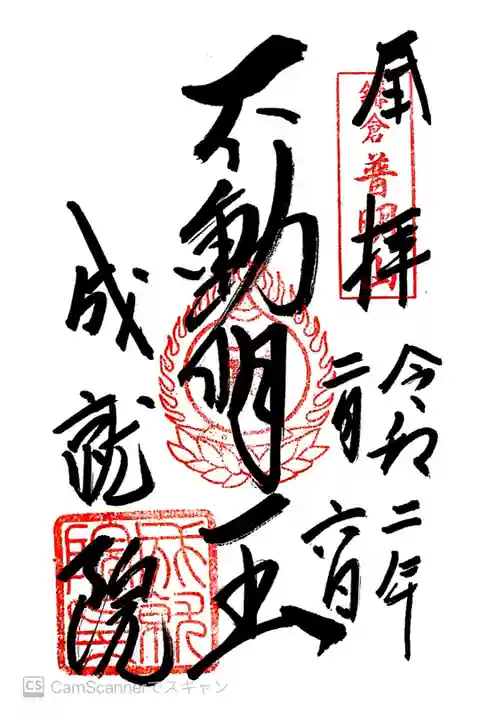 奉拝
鎌倉 普明山
令和二年
二月六日
不動明王
成就院
成就院
CS CamScannerでスキャン